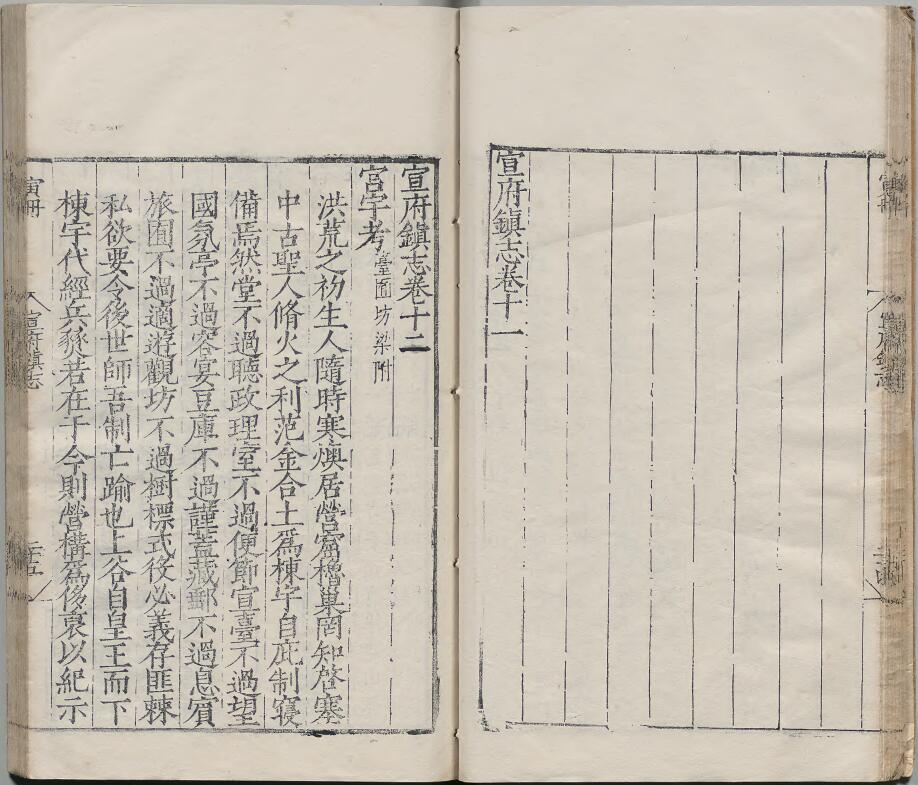 宣府鎮志卷十一
宣府鎮志卷十二
宫宇考臺囿坊梁附
洪荒之初生人隨時寒燠居營窟櫓巢罔知啓塞
中古聖人脩火之利范金合土爲棟宇自庇制寢
備焉然堂不過聽政理室不過便節宣臺不過望
國氛亭不過容宴豆庫不過謹蓋藏郵不過息賔
旅囿不過適遊觀坊不過樹標式役必義存匪棘
私欲要令後世師吾制亡踰也上谷自皇王而下
棟宇代經兵燹若在于今則營構爲侈裒以紀示
宣府鎮志
二十五